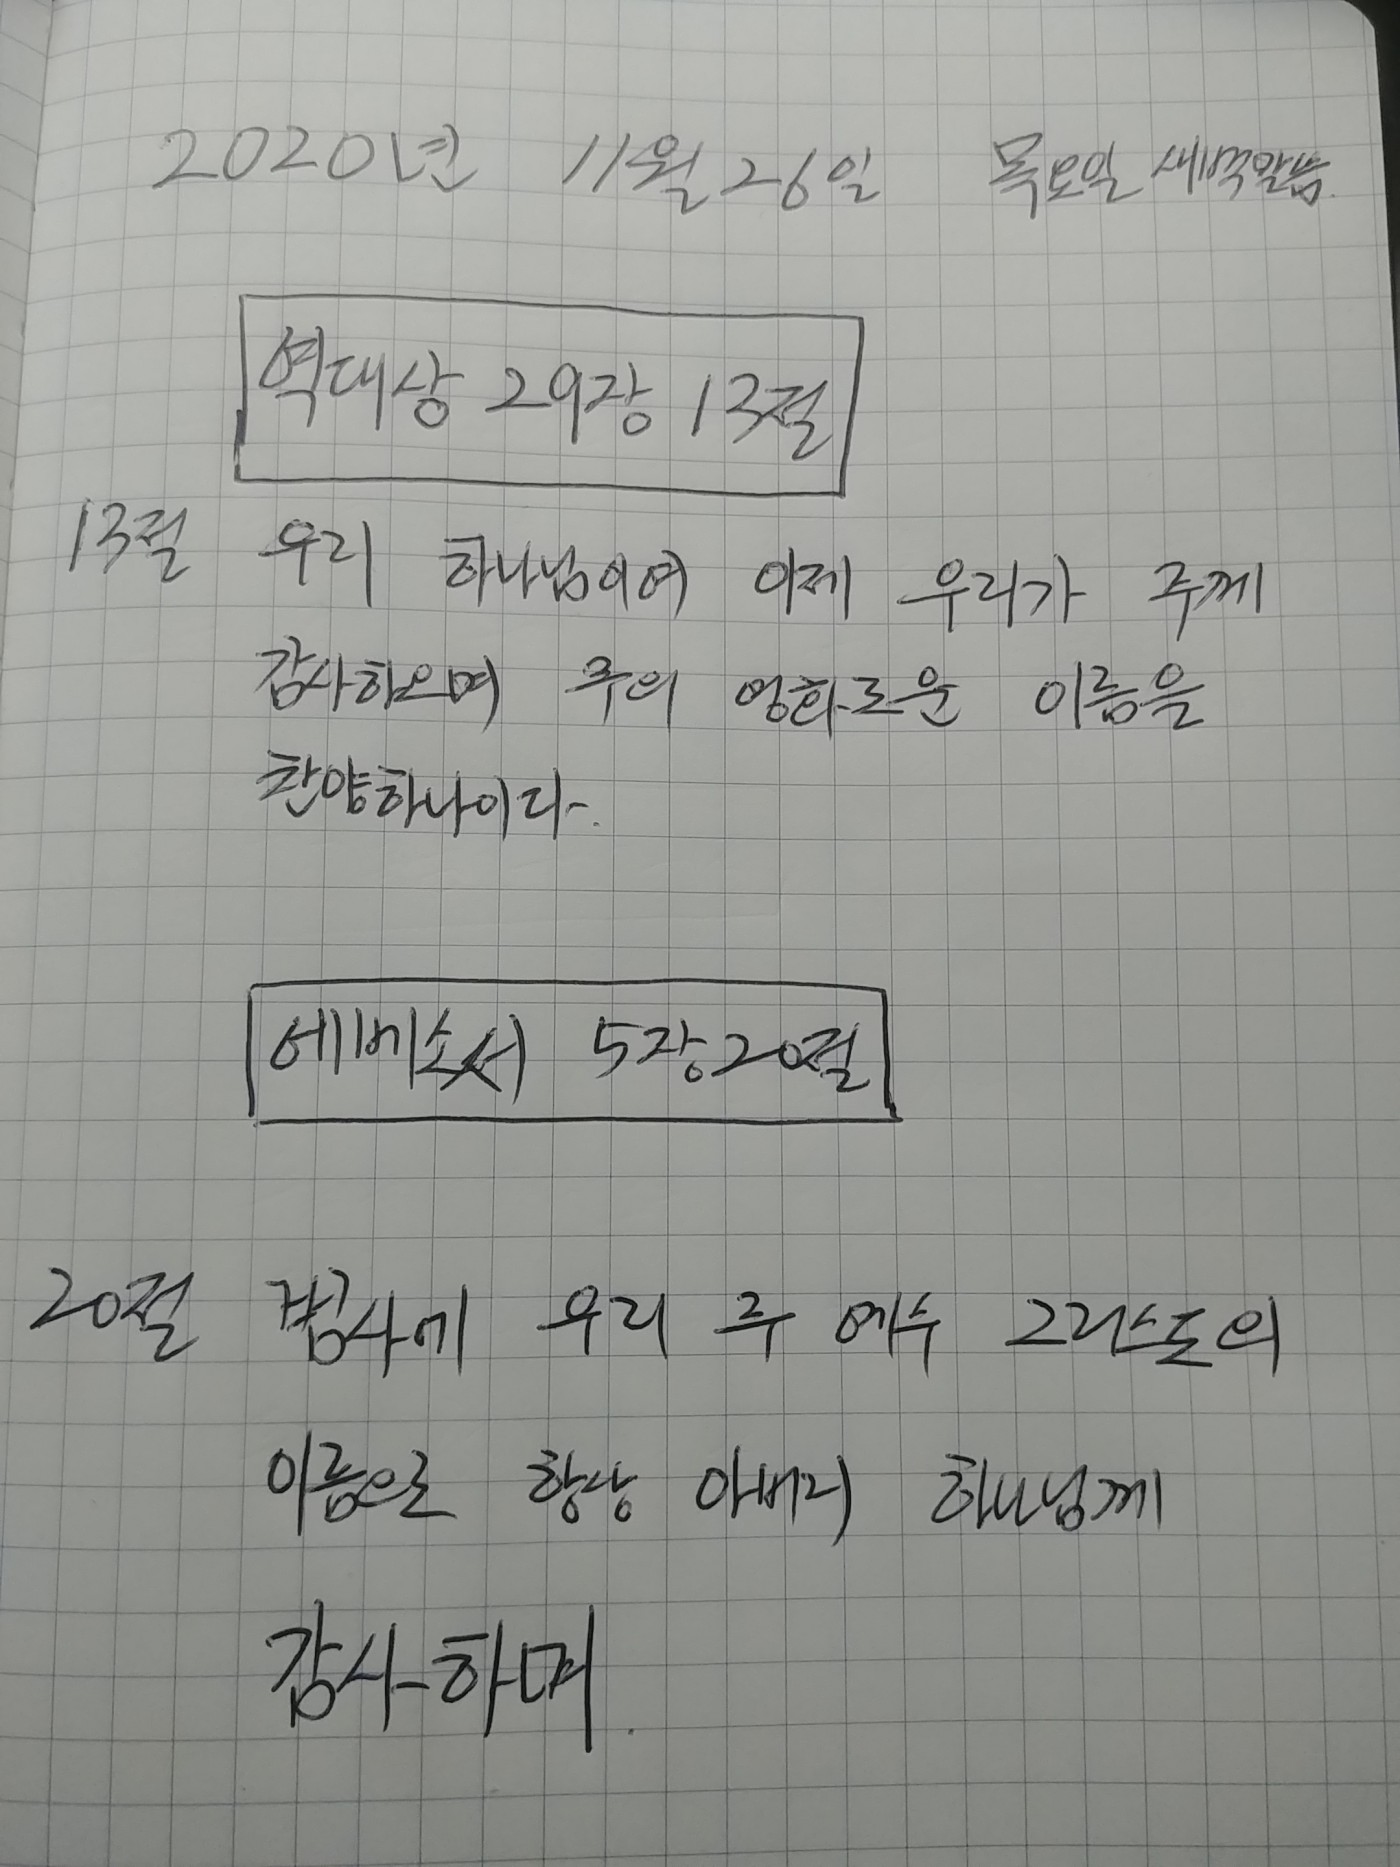 2020년 11월 26일 목요일 새벽말씀.
역대상 29장 13절
13절 우리 하나님이여 이제 우리가 주께
감사하오며 주의 영화로운 이름을
찬양하나이다.
에베소서 5장 20절
20절 범사에 우리 주 예수 그리스도의
이름으로 항상 아버지 하나님께
감사하며.